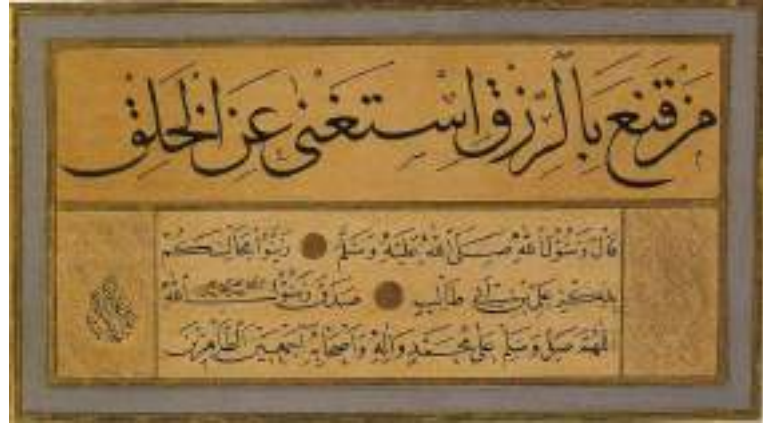 من قنع بالرزق استغنى عن الخلق
قال رسول الله صلى الله عليه وسلم زينوا مجالسكم
بذكر علي بن أبي طالب صدق رسول الله
اللهم صل وسلم على محمد وآله وأصحابه أجمعين الطاهرين